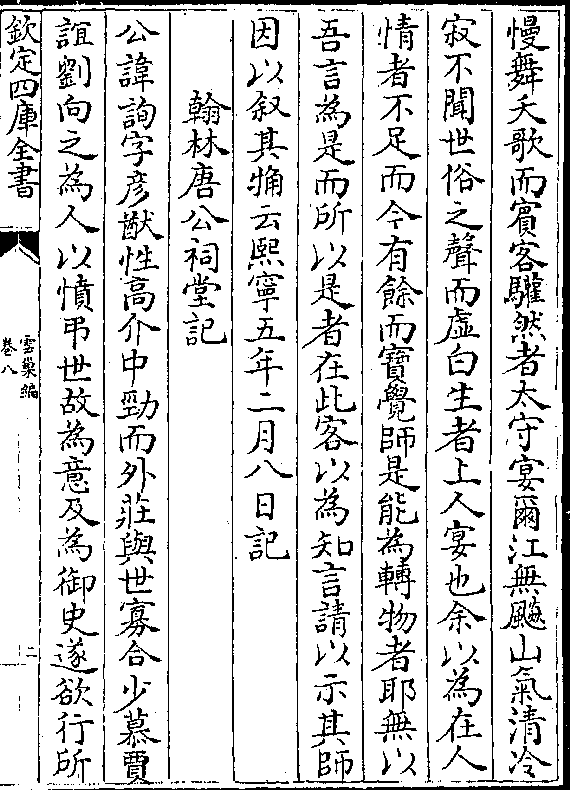 慢舞夭歌而賓客驩然者太守宴爾江無颷山氣清冷
寂不聞世俗之聲而虛白生者上人宴也余以為在人
情者不足而今有餘而寶覺師是能為轉物者耶無以
吾言為是而所以是者在此客以為知言請以示其師
因以叙其𤗉云熙寧五年二月八日記
翰林唐公祠堂記
公諱詢字彦猷性高介中勁而外莊與世寡合少慕賈
誼劉向之為人以憤弔世故為意及為御史遂欲行所
欽定四庫全書
雲巢編
卷八
二